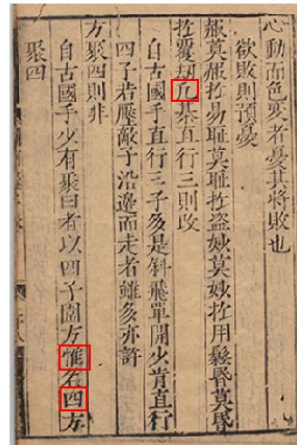 心動而色變者憂其將敗也
欲敗則預憂
赧莫赧扵易恥莫恥扵盜妙莫妙扵用鬆昏莫昏
扵覆劫凢棊直行三則改
自古國手直行三子多是斜飛單開少肯直行
四子若壓敵子沿邊而走者雖多亦許
方聚四則非
自古國手少有聚曰者以四子圍方惟名四方
聚四